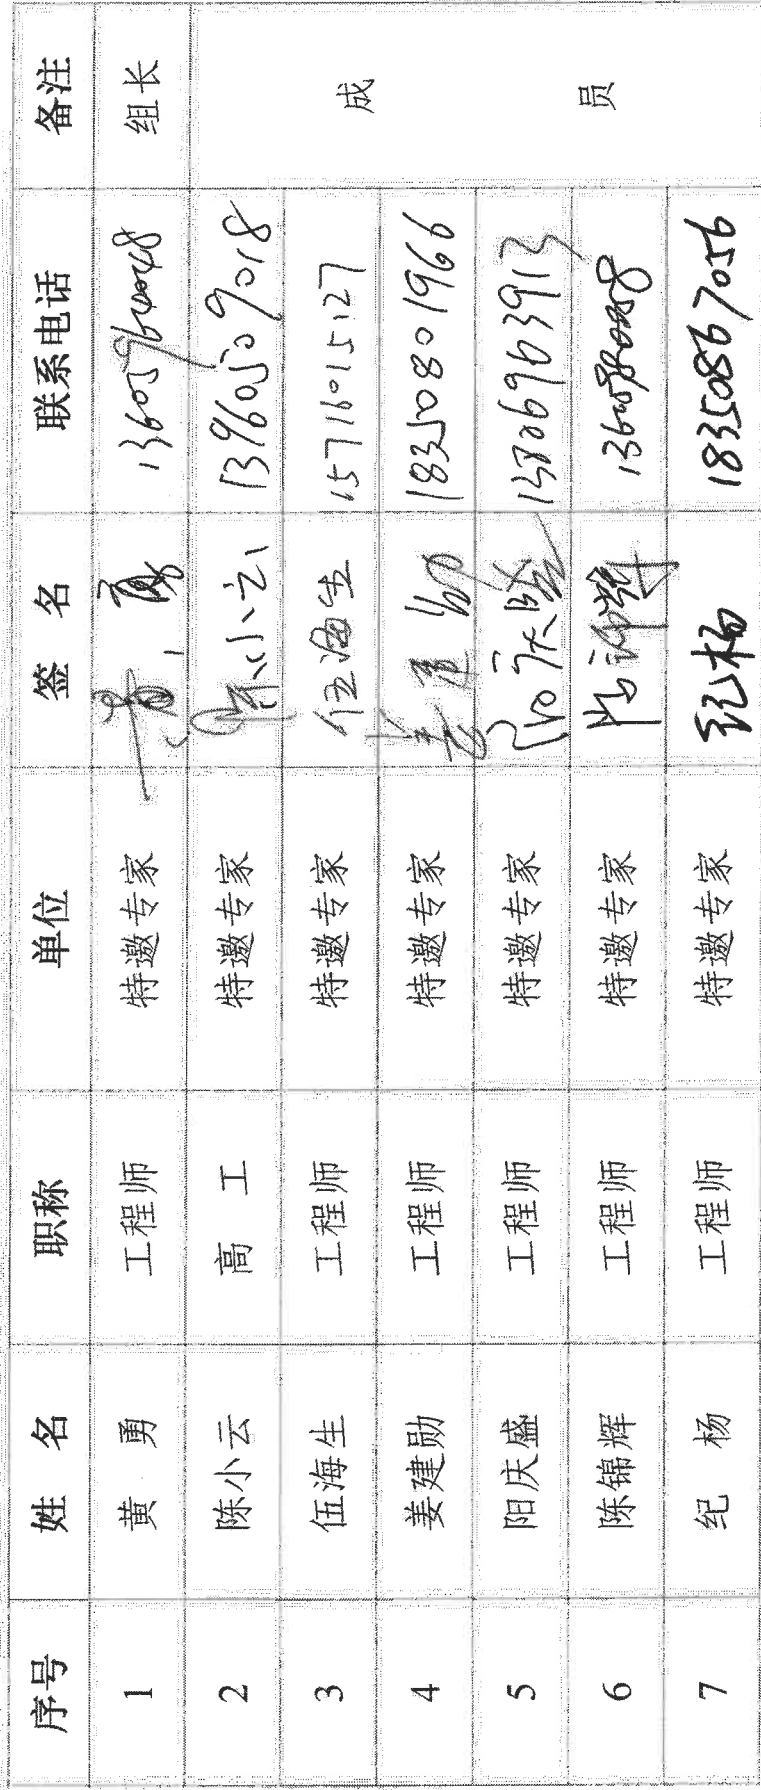 序号 姓名 职称 单位 签名 联系电话 备注
1 黄勇 工程师 特邀专家 黄勇 组长
2 陈小云 高工 特邀专家 陈小云 13960509018
3 伍海生 工程师 特邀专家 伍海生 15716015127
4 姜建勋 工程师 特邀专家 姜建勋 18350801966
5 阳庆盛 工程师 特邀专家 阳庆盛
6 陈锦辉 工程师 特邀专家 陈锦辉
7 纪杨 工程师 特邀专家 纪杨 18350867056
成员